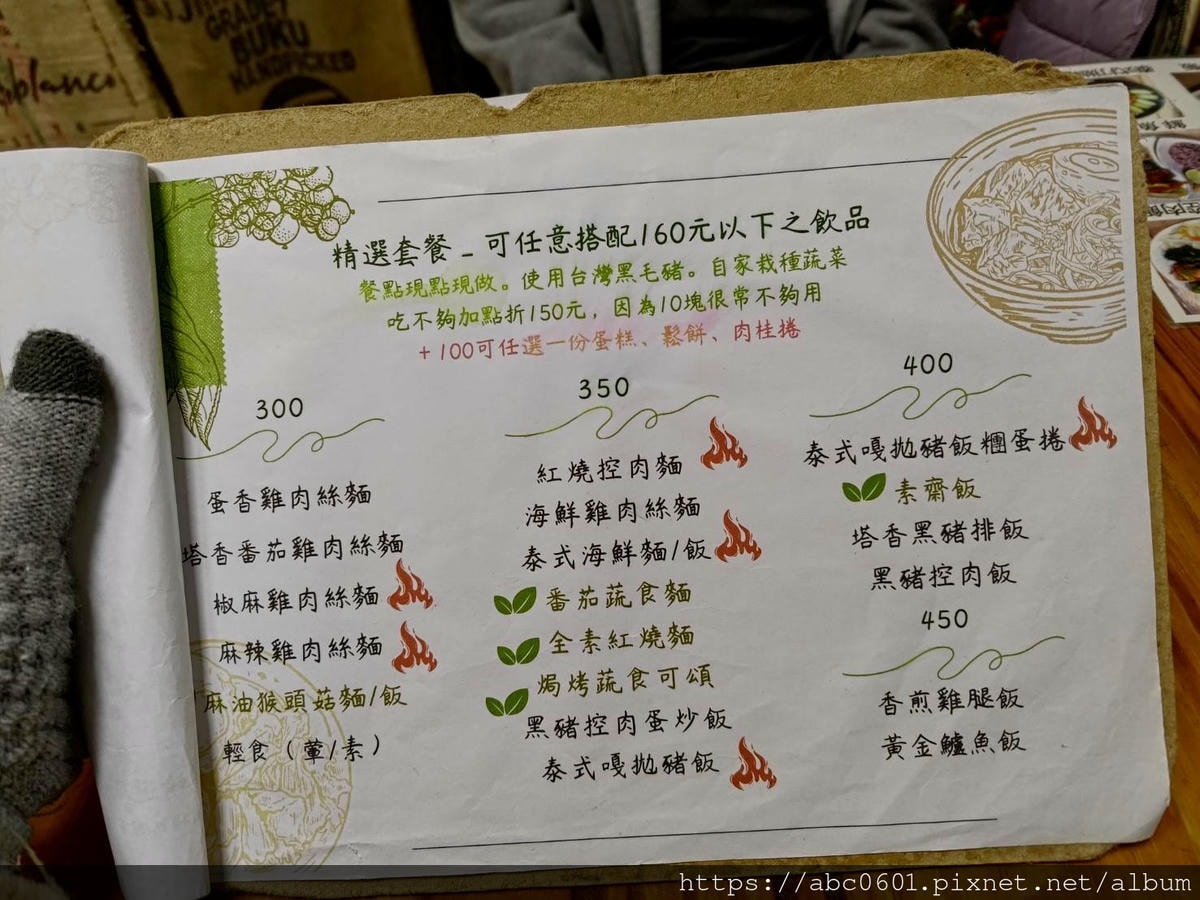 GRADE?
BUKU
HANDPICKED
blanco
精選套餐_可任意搭配160元以下之飲品
餐點現點現做。使用台灣黑毛豬。自家栽種蔬菜
吃不夠加點折150元，因為10塊很常不夠用
+100可任選一份蛋糕、鬆餅、肉桂捲
300
蛋香雞肉絲麵
塔香番茄雞肉絲麵
椒麻雞肉絲麵
麻辣雞肉絲麵
麻油猴頭菇麵/飯
輕食（葷/素）
350
紅燒控肉麵
海鮮雞肉絲麵
泰式海鮮麵/飯
番茄蔬食麵
全素紅燒麵
焗烤蔬食可頌
黑豬控肉蛋炒飯
泰式嘎拋豬飯
400
泰式嘎拋豬飯糰蛋捲
素齋飯
塔香黑豬排飯
黑豬控肉飯
450
香煎雞腿飯
黃金鱸魚飯
https://abc0601.pixnet.net/album